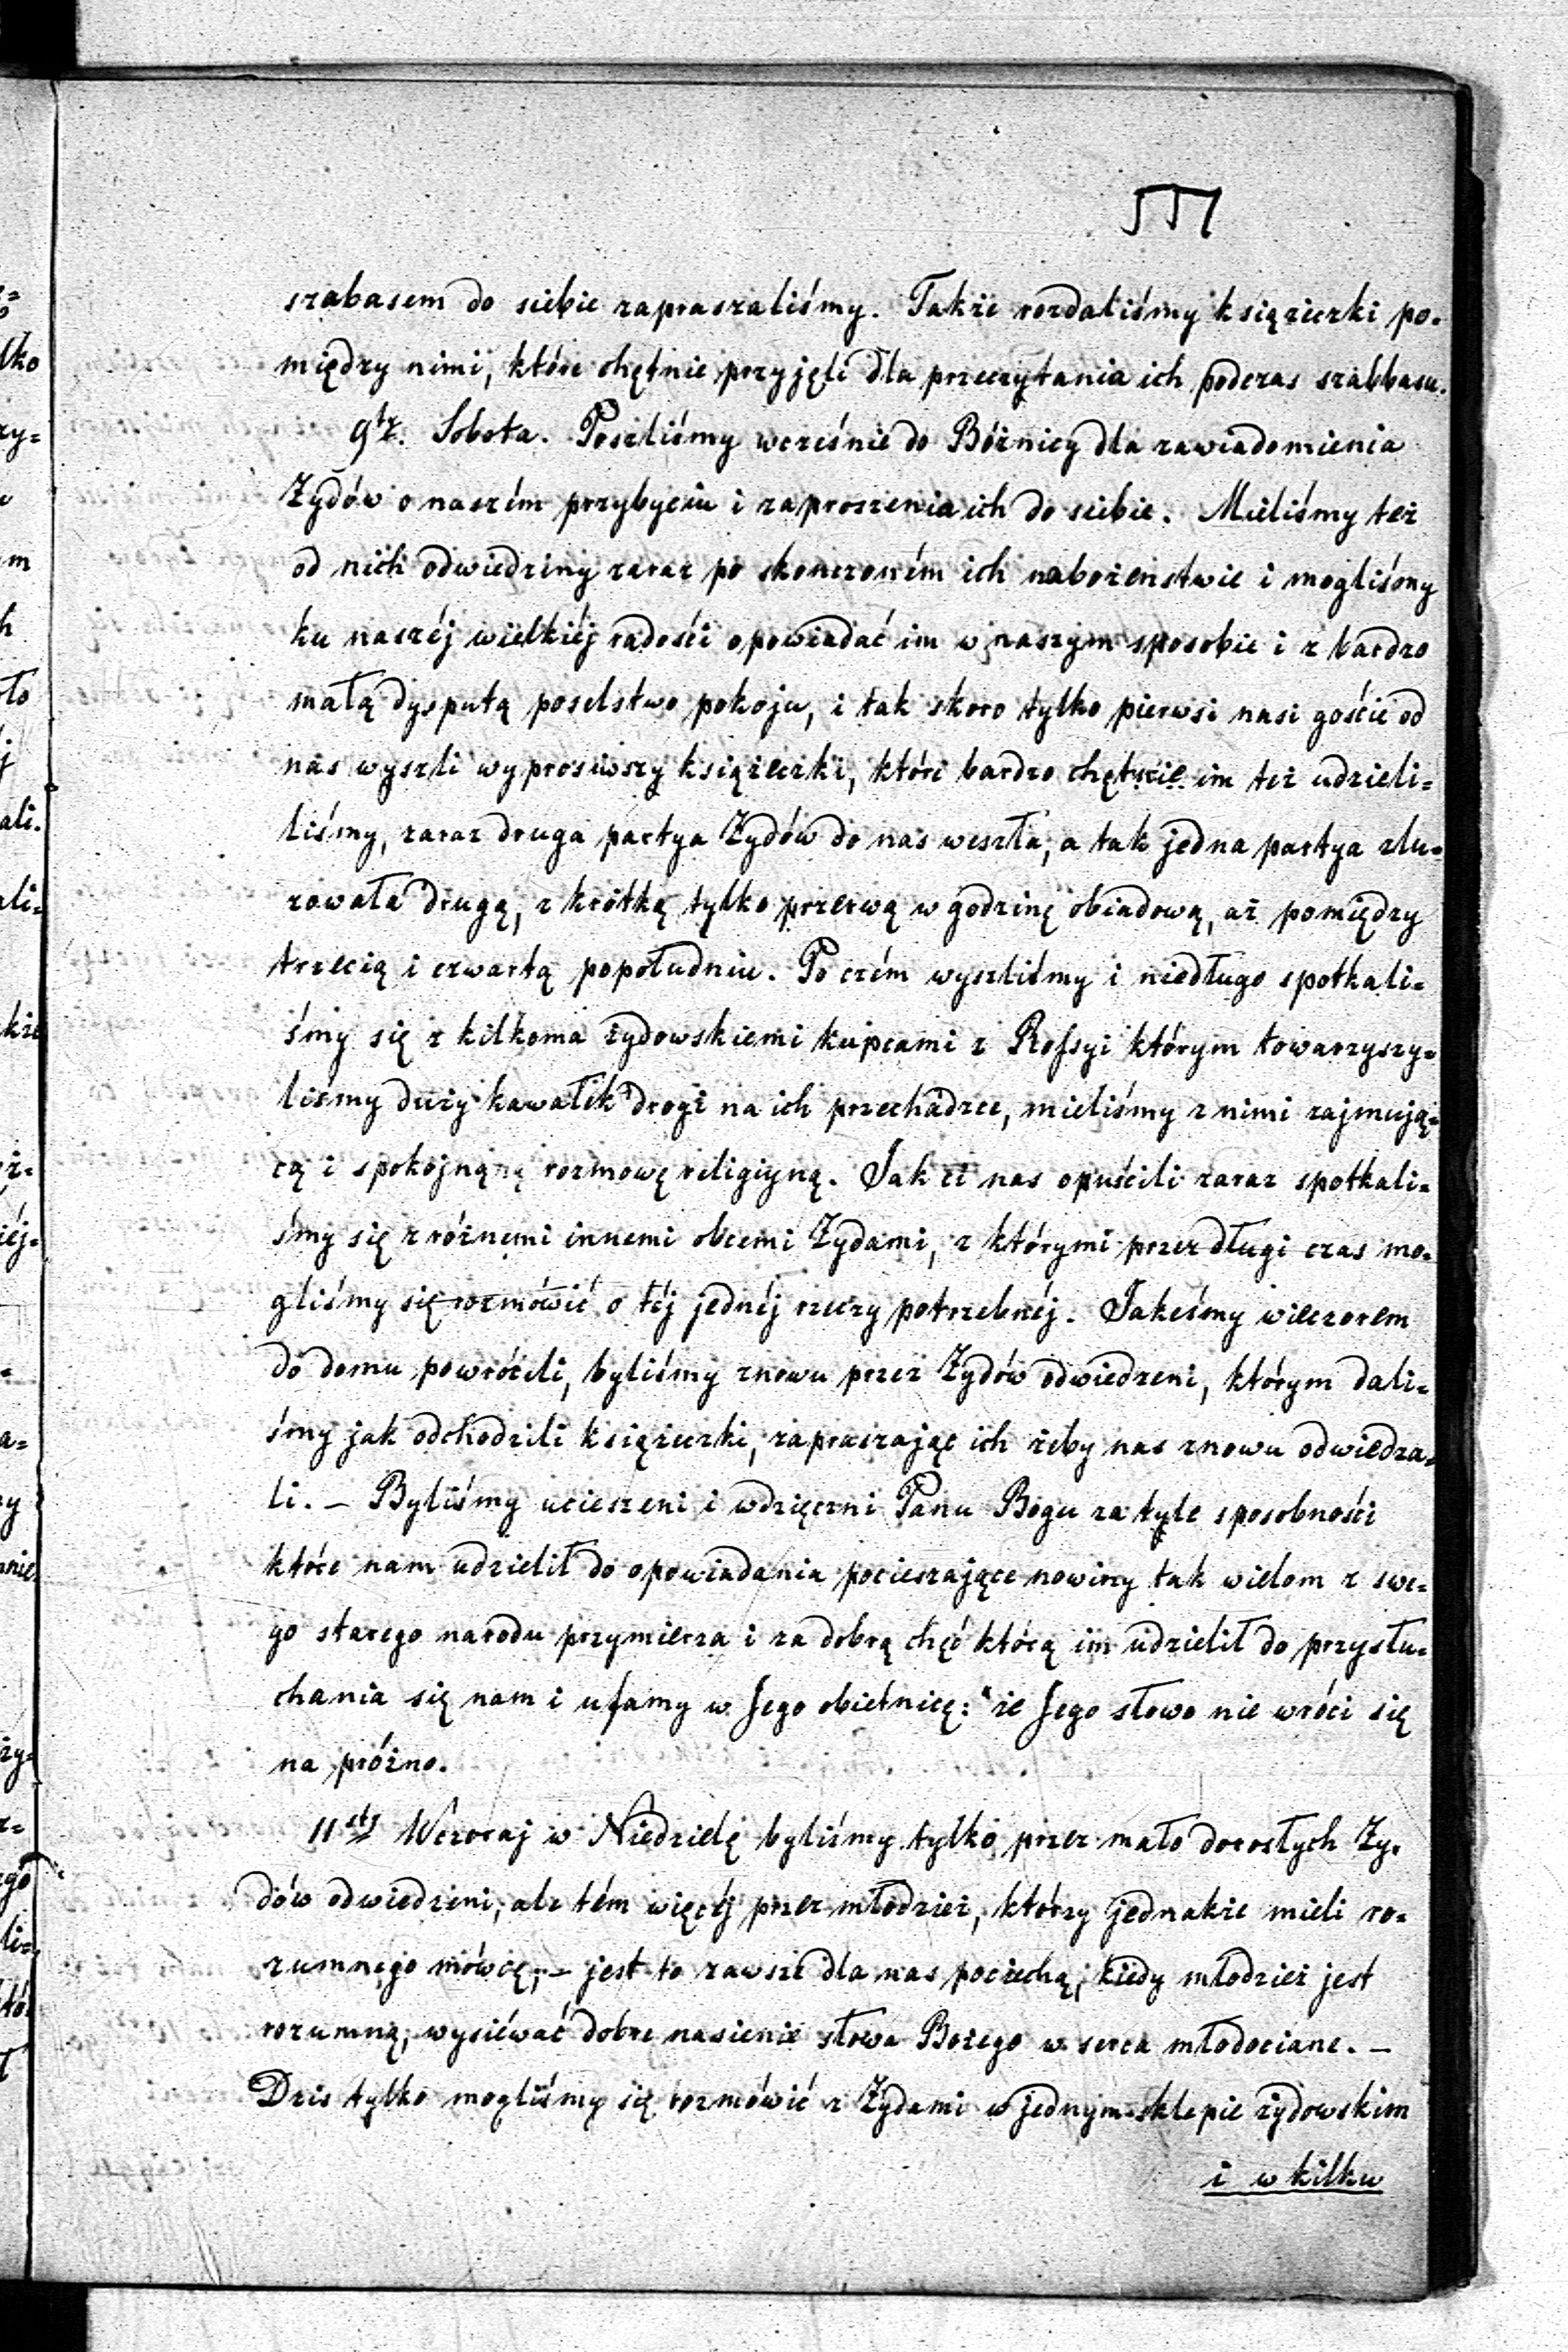 557
szabasem do siebie zapraszaliśmy. Także rozdaliśmy książeczki po-
między nimi, które chętnie przyjęli dla przeczytania ich podczas szabbasu.
9ty. Sobota. Poszliśmy wcześnie do Bóżnicy dla zawiadomienia
Żydów o naszém przybyciu i zaproszenia ich do siebie. Mieliśmy też
od nich odwiedziny zaraz po skonczoném ich nabożenstwie i mogliśmy
ku naszéj wielkiéj radości opowiadać im w naszym sposobie i z bardzo
małą dysputą poselstwo pokoju, i tak skoro tylko pierwsi nasi goście od
nas wyszli wyprosiwszy książeczki, któri bardzo chętnie im też udzieli-
liśmy, zaraz druga partya Żydów do nas weszła, a tak jedna partya zlu-
zowała drugą, z krótką tylko przerwą w godzinę obiadową, aż pomiędzy
trzecią i czwartą popołudniu. Po czém wyszliśmy i niedługo spotkali-
śmy się z kilkoma żydowskiemi kupcami z Rofsyi którym towarzyszy-
liśmy duży kawałek drogi na ich przechadzce, mieliśmy z nimi zajmują-
cą i spokojną rozmowę religiyną. Jak ci nas opuścili zaraz spotkali-
śmy się z różnemi innemi obcemi Żydami, z którymi przez długi czas mo-
gliśmy się rozmówić o téj jednéj rzeczy potrzebnéj. Jakeśmy wieczorem
do domu powrócili, byliśmy znowu przez Żydów odwiedzeni, którym dali-
śmy jak odchodzili książeczki, zapraszając ich żeby nas znowu odwiedza-
li. – Byliśmy ucieszeni i wdzięczni Panu Bogu za tyle sposobności
które nam udzielił do opowiadania pocieszające nowiny tak wielom z swe-
go starego narodu przymierza i za dobrą chęć którą im udzielił do przysłu-
chania się nam i ufamy w Jego obietnicę: "że Jego słowo nie wróci się
na próżno.
11sty Wczoraj w Niedzielę byliśmy tylko przez mało dorosłych Ży-
dów odwiedzeni, ale tém więcéj przez młodzież, którzy jednakże mieli ro-
zumnego mówcę; – jest to zawsze dla nas pociechą, kiedy młodzież jest
rozumną, wysiéwać dobre nasienie słowa Bożego w serca młodociane. –
Dzis tylko mogliśmy się rozmówić z Żydami w jednym sklepie żydowskim
i w kilku